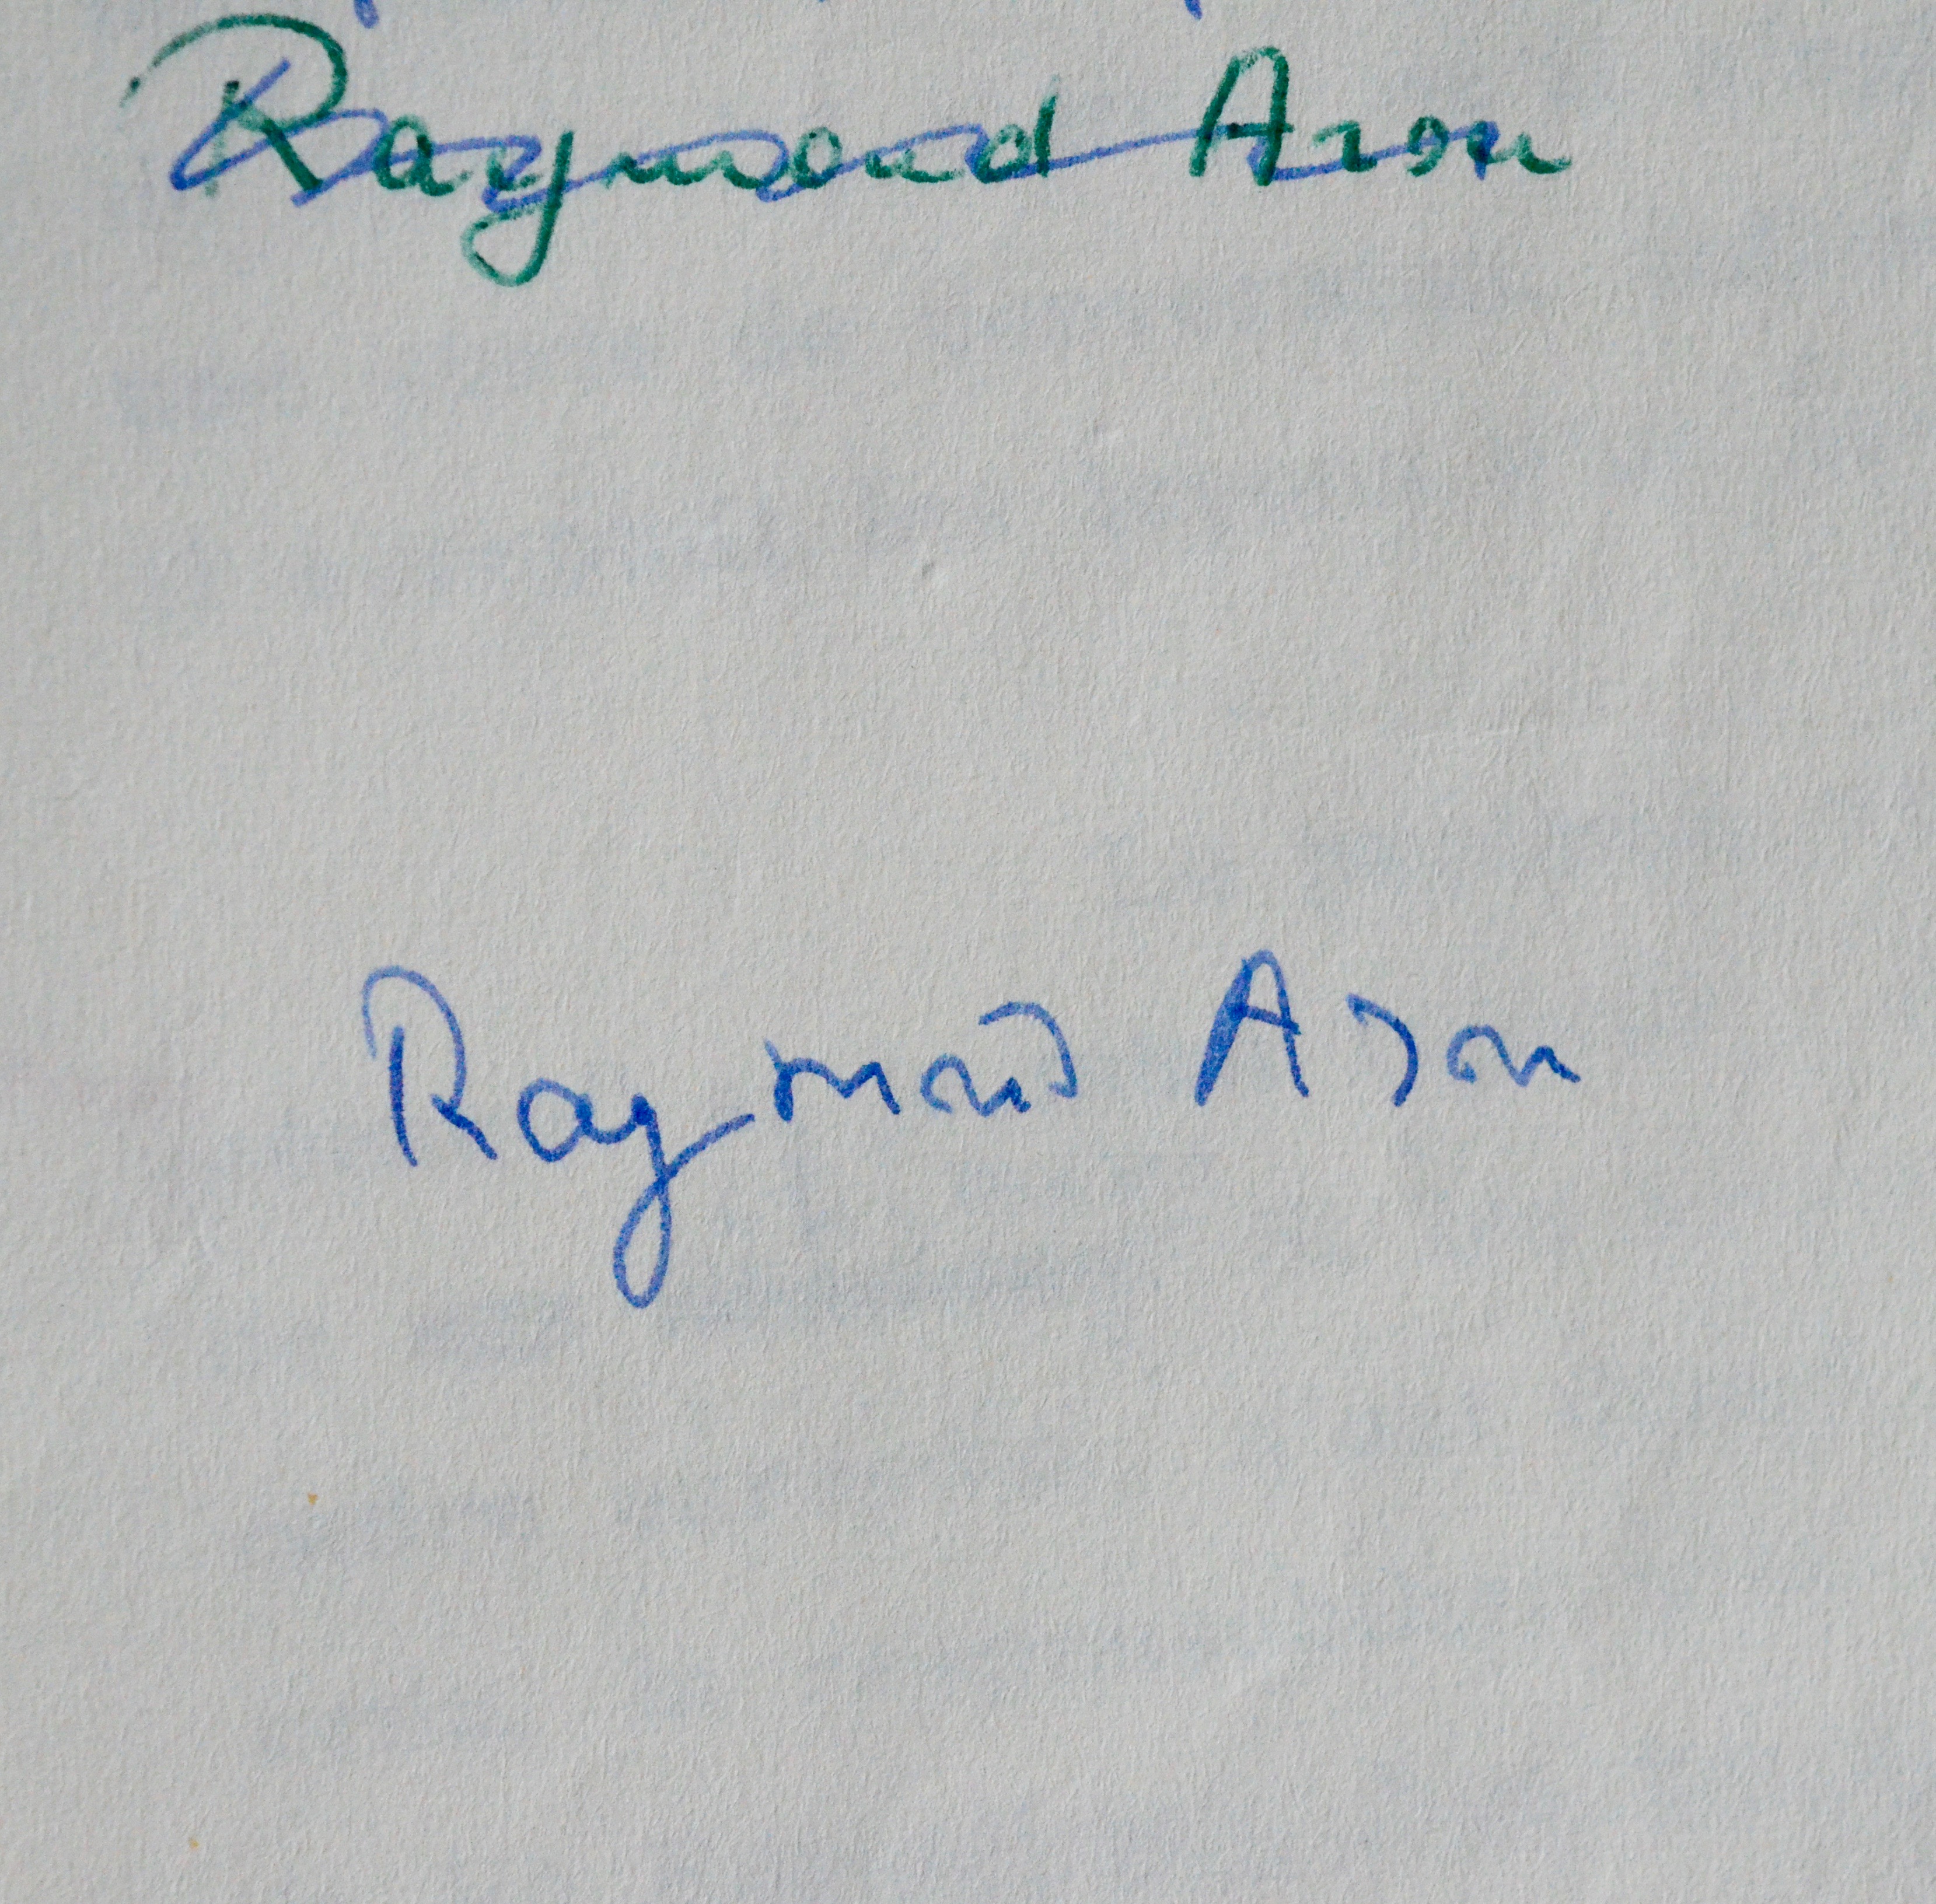 Raymond Aron
Raymond Aron